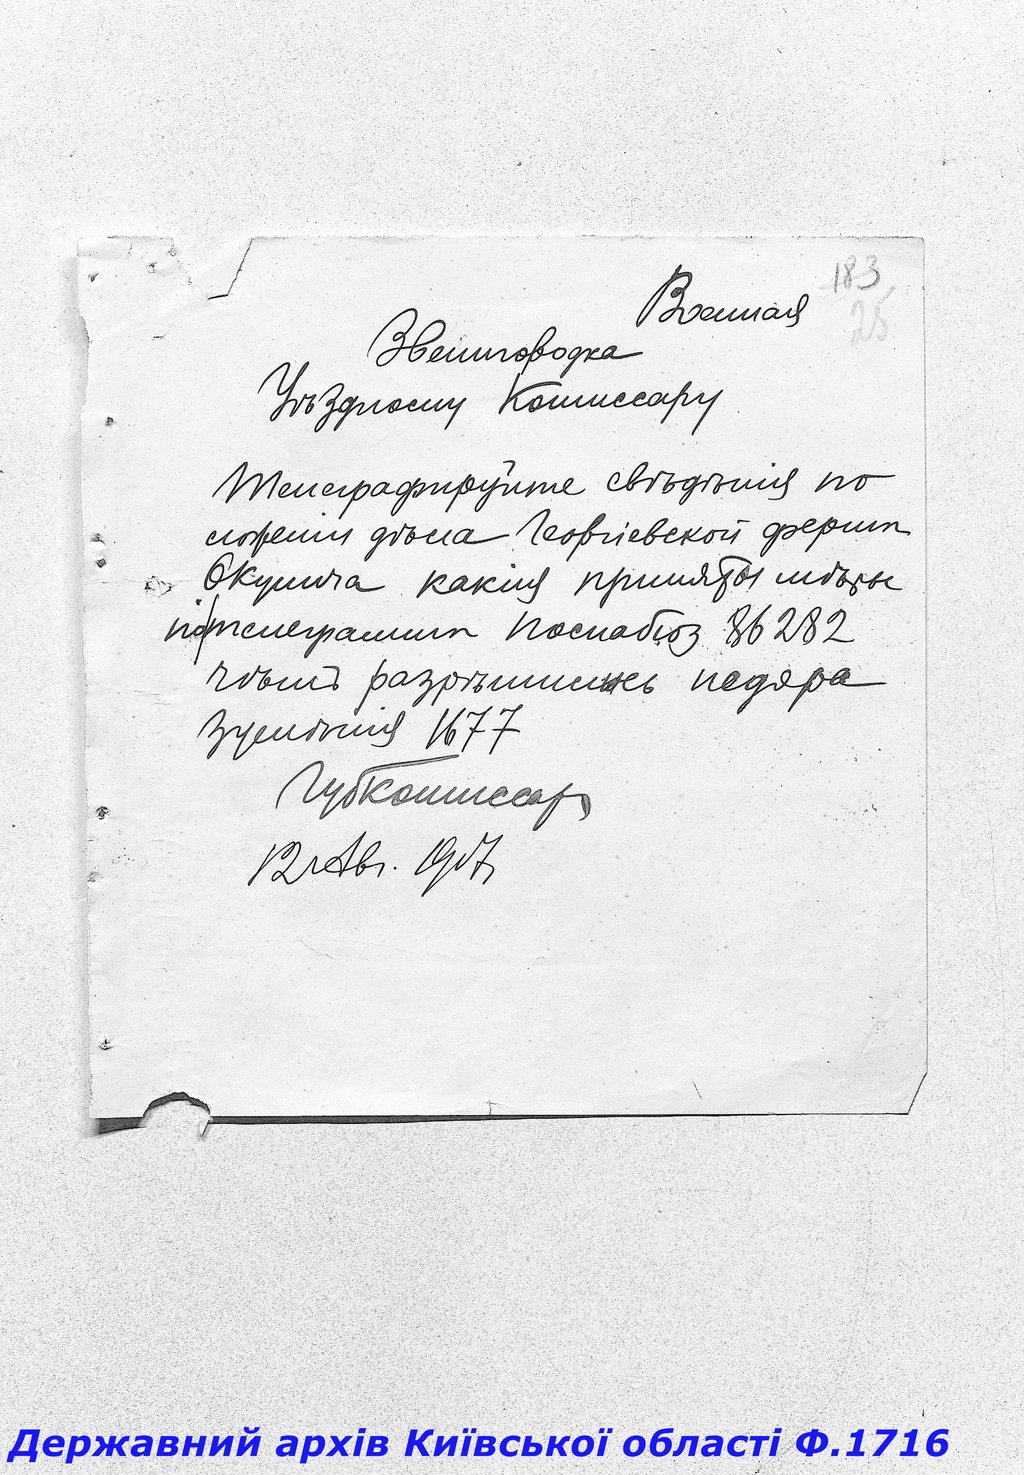 Военная
183
25
Звенигородка
Уѣздному Комиссару
Телеграфируйте свѣдѣнія по
ложеніи дѣла Георгіевской фермы
Окунича какія приняты мѣры
по телеграммѣ 86282
чѣмъ разрѣшились недора
зумѣнія 1677
Губкомиссар
12 Авг. 917
Державний архів Київської області Ф.1716